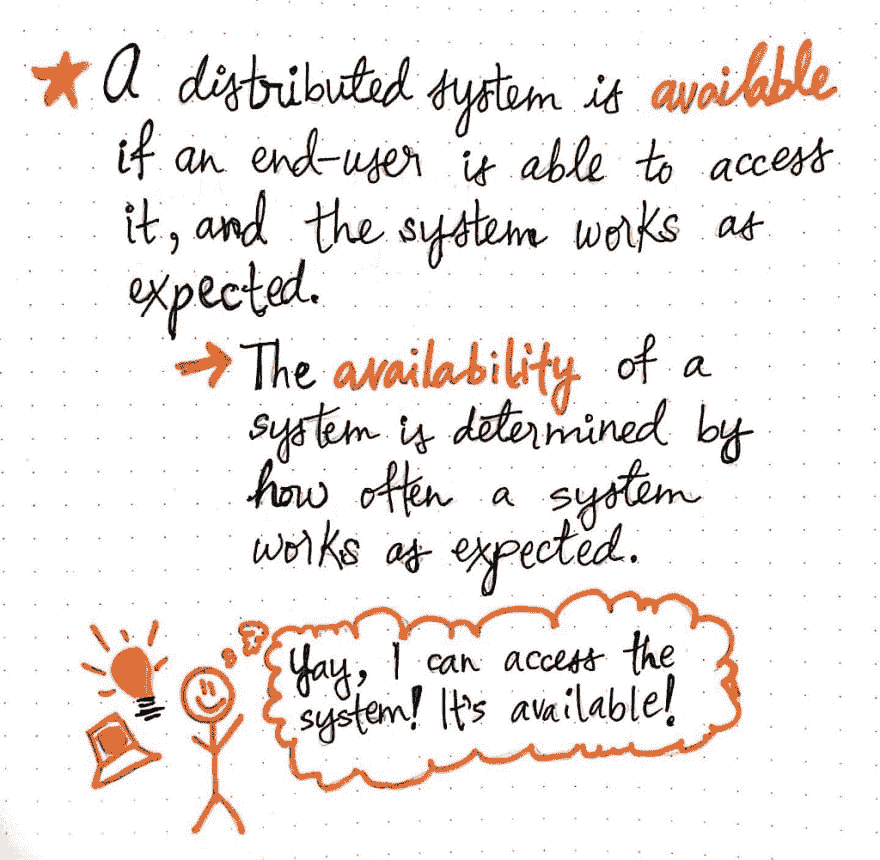 A distributed system is available
if an end-user is able to access
it, and the system works as
expected.
→ The availability of a
system is determined by
how often a system
works as expected.
Yay, I can access the
system! It's available!